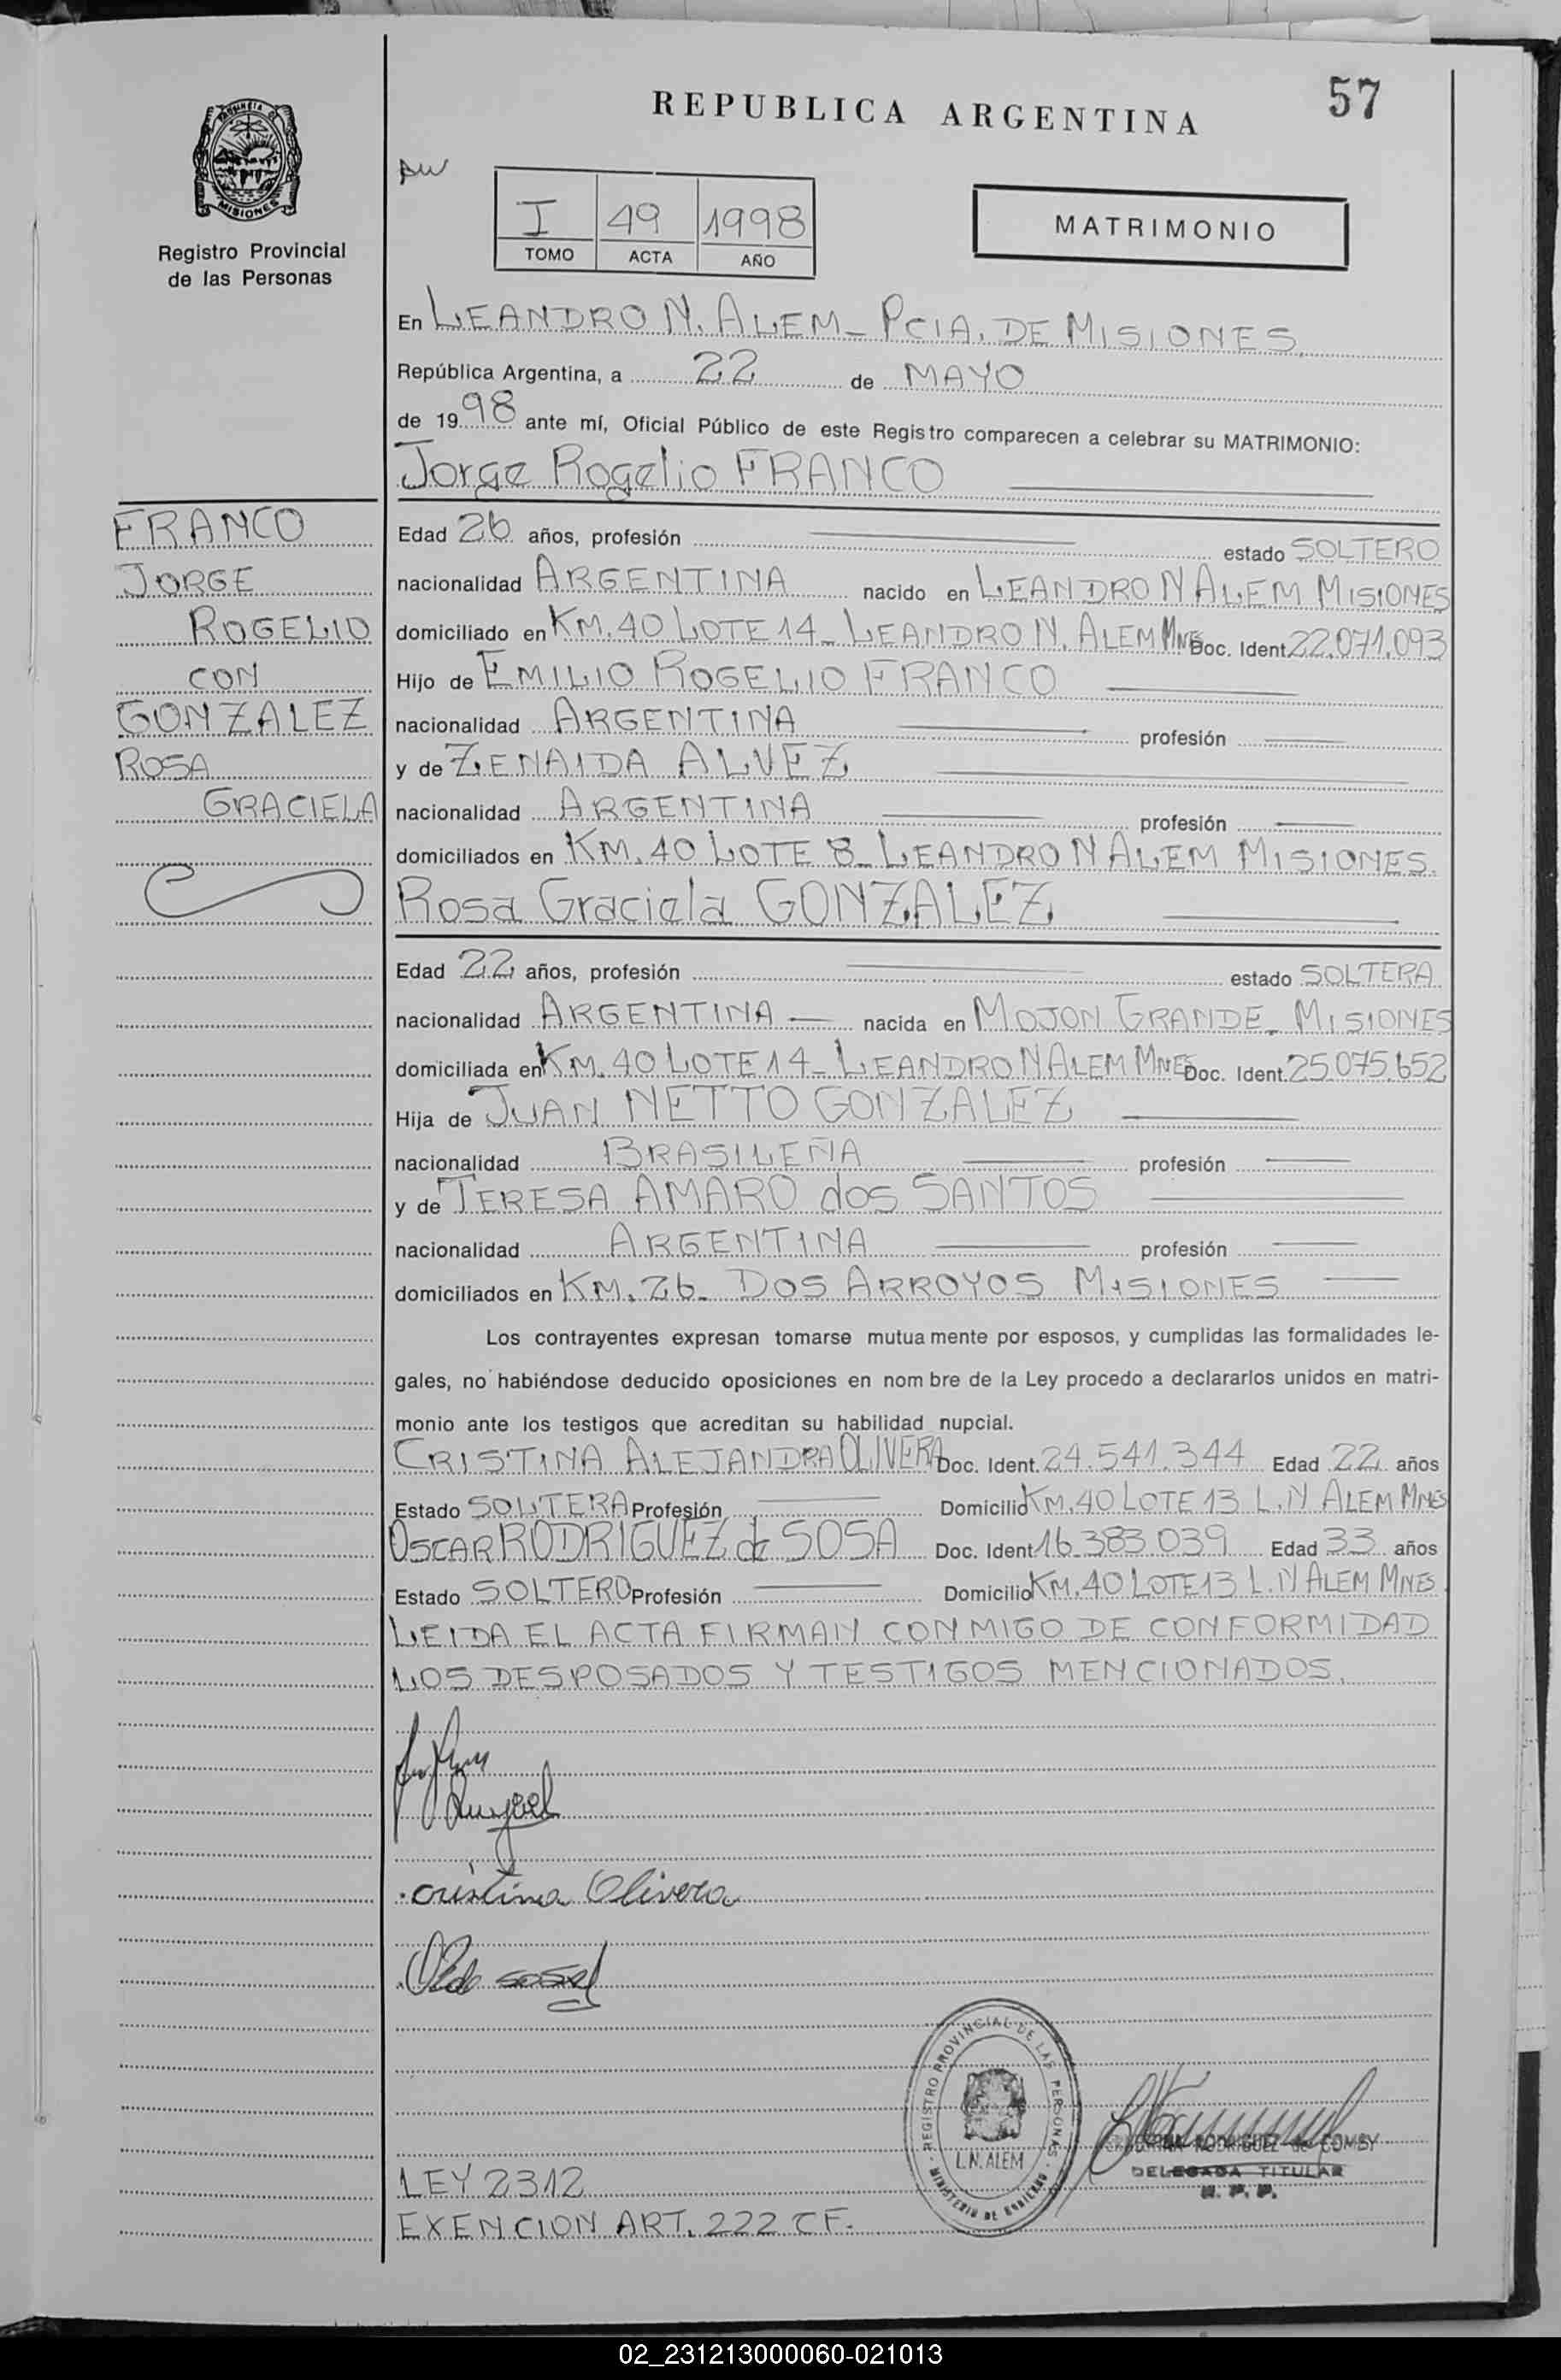 57
REPUBLICA ARGENTINA
MISIONES
Registro Provincial
de las Personas
I 49 1998
TOMO ACTA AÑO
MATRIMONIO
En LEANDRO N. ALEM - PCIA. DE MISIONES.
República Argentina, a 22 de MAYO
de 1998 ante mí, Oficial Público de este Registro comparecen a celebrar su MATRIMONIO:
Jorge Rogelio FRANCO
FRANCO
JORGE
ROGELIO
CON
GONZALEZ
ROSA
GRACIELA
Edad 26 años, profesión estado SOLTERO
nacionalidad ARGENTINA nacido en LEANDRO N ALEM MISIONES
domiciliado en KM. 40 LOTE 14 - LEANDRO N. ALEM Mnes Doc. Ident. 22.071.093
Hijo de EMILIO ROGELIO FRANCO
nacionalidad ARGENTINA profesión
y de ZENAIDA ALVEZ
nacionalidad ARGENTINA profesión
domiciliados en KM. 40 LOTE 8 - LEANDRO N ALEM MISIONES.
Rosa Graciela GONZALEZ
Edad 22 años, profesión estado SOLTERA
nacionalidad ARGENTINA nacida en MOJON GRANDE - MISIONES
domiciliada en KM. 40 LOTE 14 - LEANDRO N ALEM MNES Doc. Ident. 25.075.652
Hija de JUAN NETTO GONZALEZ
nacionalidad BRASILEÑA profesión
y de TERESA AMARO dos SANTOS
nacionalidad ARGENTINA profesión
domiciliados en KM. 26 - DOS ARROYOS MISIONES
Los contrayentes expresan tomarse mutuamente por esposos, y cumplidas las formalidades le-
gales, no habiéndose deducido oposiciones en nombre de la Ley procedo a declararlos unidos en matri-
monio ante los testigos que acreditan su habilidad nupcial.
CRISTINA ALEJANDRA OLIVERA Doc. Ident. 24.541.344 Edad 22 años
Estado SOLTERA Profesión Domicilio KM. 40 LOTE 13 L. N ALEM MNES
OSCAR RODRIGUEZ de SOSA Doc. Ident 16.383.039 Edad 33 años
Estado SOLTERO Profesión Domicilio KM. 40 LOTE 13 L. N ALEM MNES.
LEIDA EL ACTA FIRMAN CONMIGO DE CONFORMIDAD
LOS DESPOSADOS Y TESTIGOS MENCIONADOS.
cristina Olivera
de sosa
REGISTRO PROVINCIAL DE LAS PERSONAS
L.N. ALEM
MINISTERIO DE GOBIERNO
RODRIGUEZ de COMBY
DELEGADA TITULAR
R. P. P.
LEY 2312
EXENCION ART. 222 CF.
02_231213000060-021013